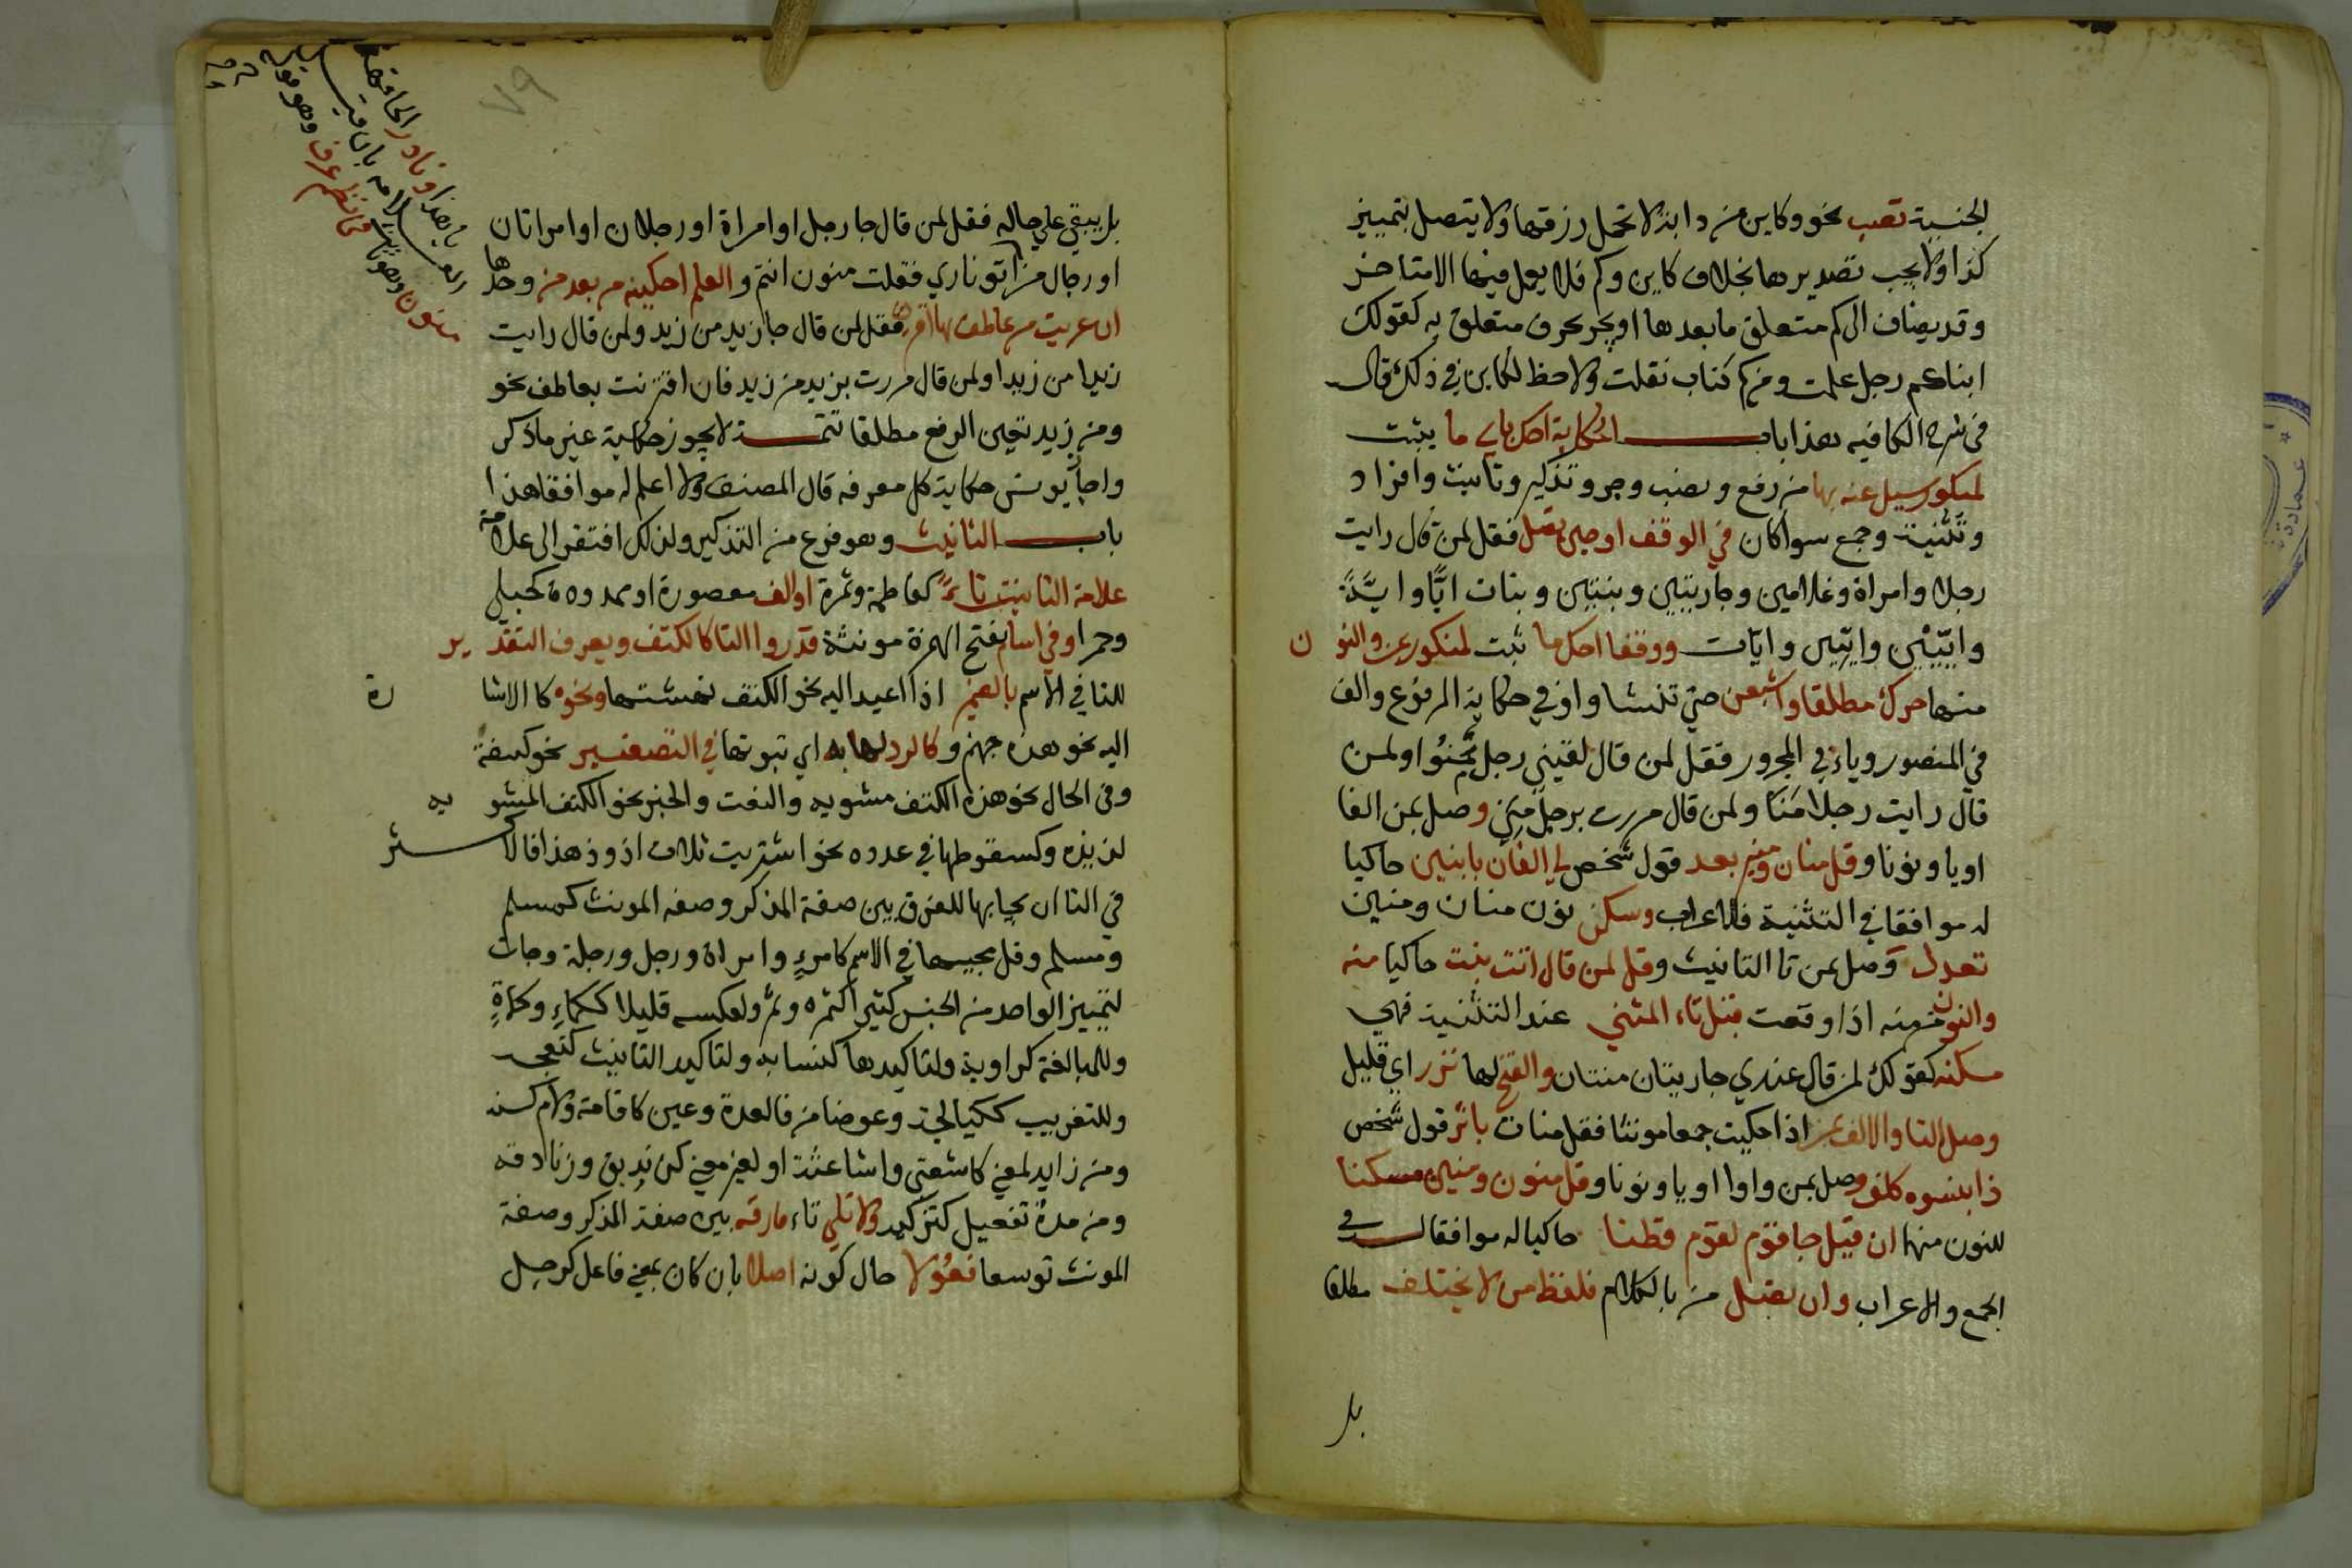 الجنسية تصب نحو وكاين من دابة لا تحمل رزقها ولا يتصل بتمييز
كذا ولا يجب تصديرها بخلاف كاين وكم فلا يعمل فيها الا متاخر
وقد يضاف الى كم متعلق ما بعدها او يجر بحرف متعلق به كقولك
ابناءكم رجل علمت ومن كم كتاب نقلت ولا حظ لكاين في ذلك قال
في شرح الكافيه هذا باب الحكاية احك باي ما يثبت
لمنكور سيل عنه بها من رفع ونصب وجر وتذكير وتانيث وافراد
وتثنية وجمع سوا كان في الوقف او حين تصل فقل لمن قال رايت
رجلا وامراة وغلامين وجاريتين وبنين وبنات ايًّا وايَّةً
وايّيْن وايّتين وايّات ووقفا احك ما ثبت لمنكور بمن والنون
منها حرك مطلقا واشبعن حتى تنشا واو في حكاية المرفوع والف
في المنصور وياء في المجرور فقل لمن قال لقيني رجل منُو ولمن
قال رايت رجلا منَا ولمن قال مررت برجل مني وصل بمن الفا
او يا ونونا وقل منان ومنين بعد قول شخص لي الفان بابنين حاكيا
له موافقا في التثنية فالاعراب وسكن نون منان ومنين
تعدل وصل بمن تا التانيث وقل لمن قال اتت بنت حاكيا منه
والنون من منه اذا وقعت قبل تاء المثني عند التثنية فهي
مسكنه كقولك لمن قال عندي جاريتان منتان والفتح لها نزر اي قليل
وصل التا والالف بمن اذا حكيت جمعا مونثا فقل منات باثر قول شخص
ذا بنسوه كلف وصل بمن واوا او يا ونونا وقل منون ومنين مسكنا
للنون منهما ان قيل جا قوم لقوم فطنا حاكيا له موافقا له في
الجمع والاعراب وان تصل من بالكلام فلفظ من لا يختلف مطلقا
بل
٧٩
بل يبقي علي حاله فقل لمن قال جا رجل او امراة او رجلان او امراتان
او رجال من اتو ناري فقلت منون انتم والعلم احكينه من بعد من وحدها
ان عريت من عاطف بها اقترن فقل لمن قال جا زيد من زيد ولمن قال رايت
زيدا من زيدا ولمن قال مررت بزيد من زيد فان اقترنت بعاطف نحو
ومن زيد تعين الرفع مطلقا تتمة لا يجوز حكاية غير ما ذكر
واجاز يونس حكاية كل معرفه قال المصنف ولا اعلم له موافقا هذا
باب التانيث وهو فرع من التذكير ولذلك افتقر الى علامة
علامة التانيث تاءٌ كفاطمة وثمرة او الف مقصورة او ممدوه ة كحبلى
وحمرا وفي اسام بفتح الهمزة مونثة قدروا التا كالكتف ويعرف التقدير
للتا في الاسم بالضمير اذا اعيد اليه نحو الكتف نهشتها ونحوه كالاشارة
اليه نحو هذه جهنم وكالرد لها به اي ثبوتها في التصغير نحو كتيفة
وفي الحال نحو هذه الكتف مشويه والنعت والخبر نحو الكتف المشويه
لذيذه وكسقوطها في عدده نحو اشتريت ثلاث اذوذ هذا فالاكثر
في التا ان يجا بها للفرق بين صفة المذكر وصفه المونث كمسلم
ومسلم وقل مجيها في الاسم كامرءٍ وامراة ورجل ورجلة وجات
لتمييز الواحد من الجنس كثيرا كثمره وثمر ولعكسه قليلا ككماءٍ وكماةٍ
وللمبالغة كراوية ولتاكيدها كنسابه ولتاكيد التانيث كنعجه
وللتعريب ككيالجة وعوضا من فا لعدة وعين كاقامة ولام كسنه
ومن زايد لمعني كاشعثي واشاعثة او لغير معني كزنديق وزنادقه
ومن مدة تفعيل كتزكيه ولا تلي تاء فارقه بين صفة المذكر وصفة
المونث توسعا فعُولا حال كونه اصلا بان كان بمعني فاعل كرجل